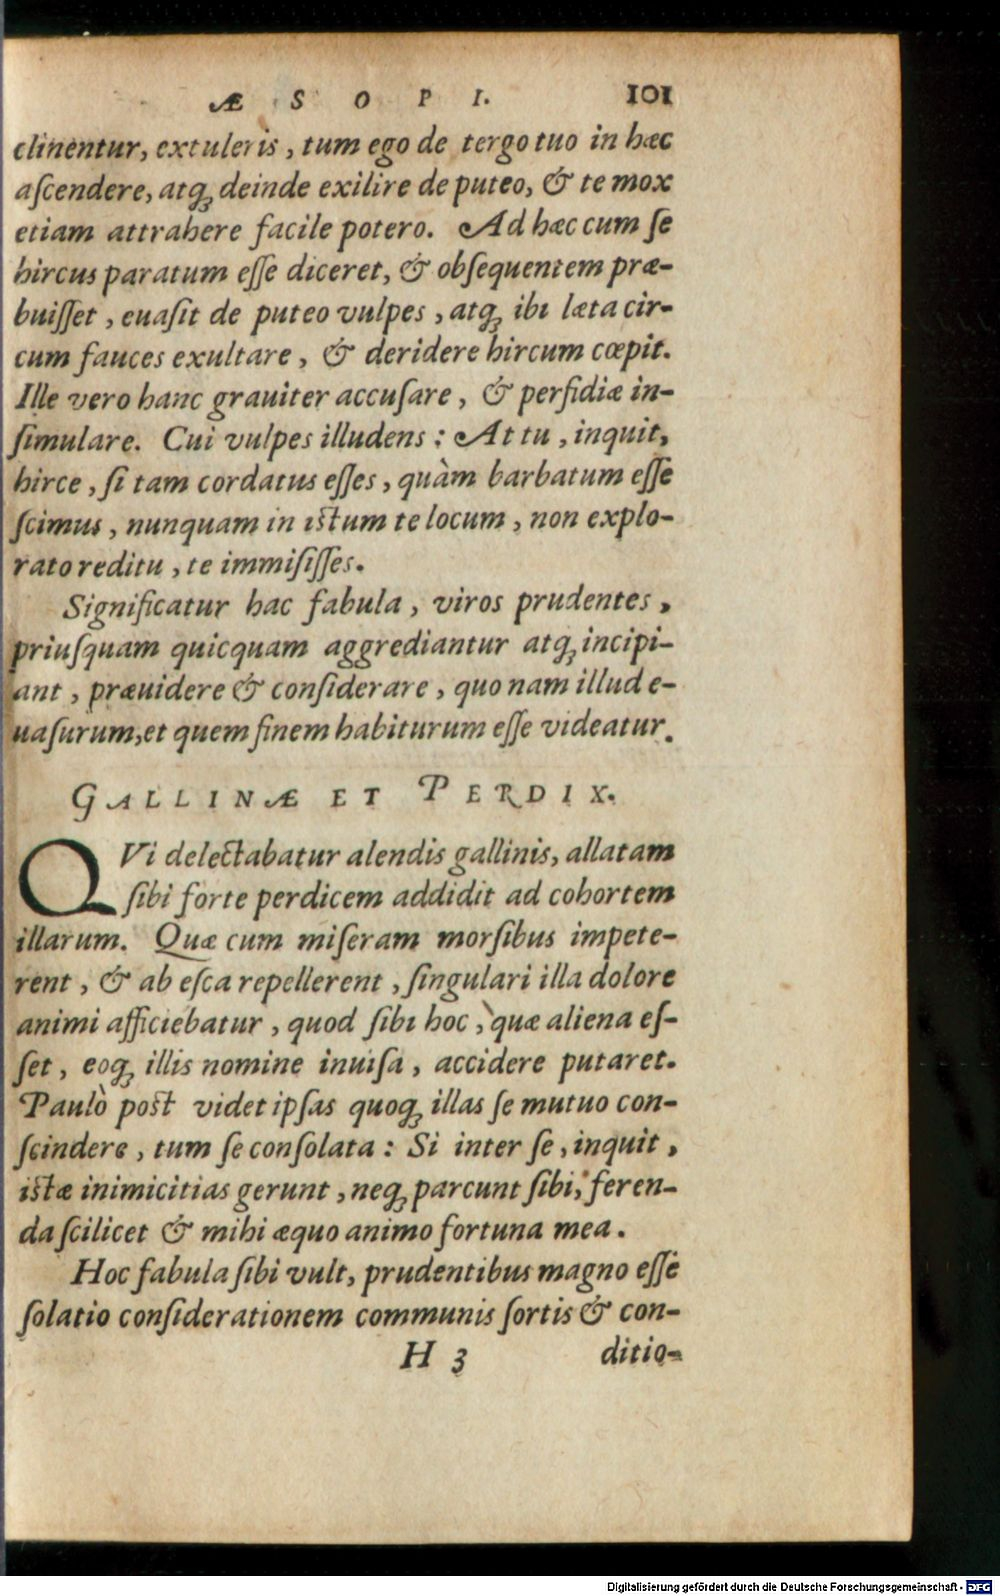 ÆSOPI. 101
clinentur, extuleris, tum ego de tergo tuo in hæc
aſcendere, atqꝫ deinde exilire de puteo, & te mox
etiam attrahere facile potero. Ad hæc cum ſe
hircus paratum eſſe diceret, & obſequentem præ-
buiſſet, euaſit de puteo vulpes, atqꝫ ibi læta cir-
cum fauces exultare, & deridere hircum cœpit.
Ille vero hanc grauiter accuſare, & perfidiæ in-
ſimulare. Cui vulpes illudens: At tu, inquit,
hirce, ſi tam cordatus eſſes, quàm barbatum eſſe
ſcimus, nunquam in iſtum te locum, non explo-
rato reditu, te immiſiſſes.
Significatur hac fabula, viros prudentes,
priuſquam quicquam aggrediantur atqꝫ incipi-
ant, præuidere & conſiderare, quo nam illud e-
uaſurum, et quem finem habiturum eſſe videatur.
GALLINÆ ET PERDIX.
QVi delectabatur alendis gallinis, allatam
ſibi forte perdicem addidit ad cohortem
illarum. Quæ cum miſeram morſibus impete-
rent, & ab eſca repellerent, ſingulari illa dolore
animi afficiebatur, quod ſibi hoc, quæ aliena eſ-
ſet, eoqꝫ illis nomine inuiſa, accidere putaret.
Paulò poſt videt ipſas quoqꝫ illas ſe mutuo con-
ſcindere, tum ſe conſolata: Si inter ſe, inquit,
iſtæ inimicitias gerunt, neqꝫ parcunt ſibi, feren-
da ſcilicet & mihi æquo animo fortuna mea.
Hoc fabula ſibi vult, prudentibus magno eſſe
ſolatio conſiderationem communis ſortis & con-
H 3 ditio-
Digitalisierung gefördert durch die Deutsche Forschungsgemeinschaft - DFG